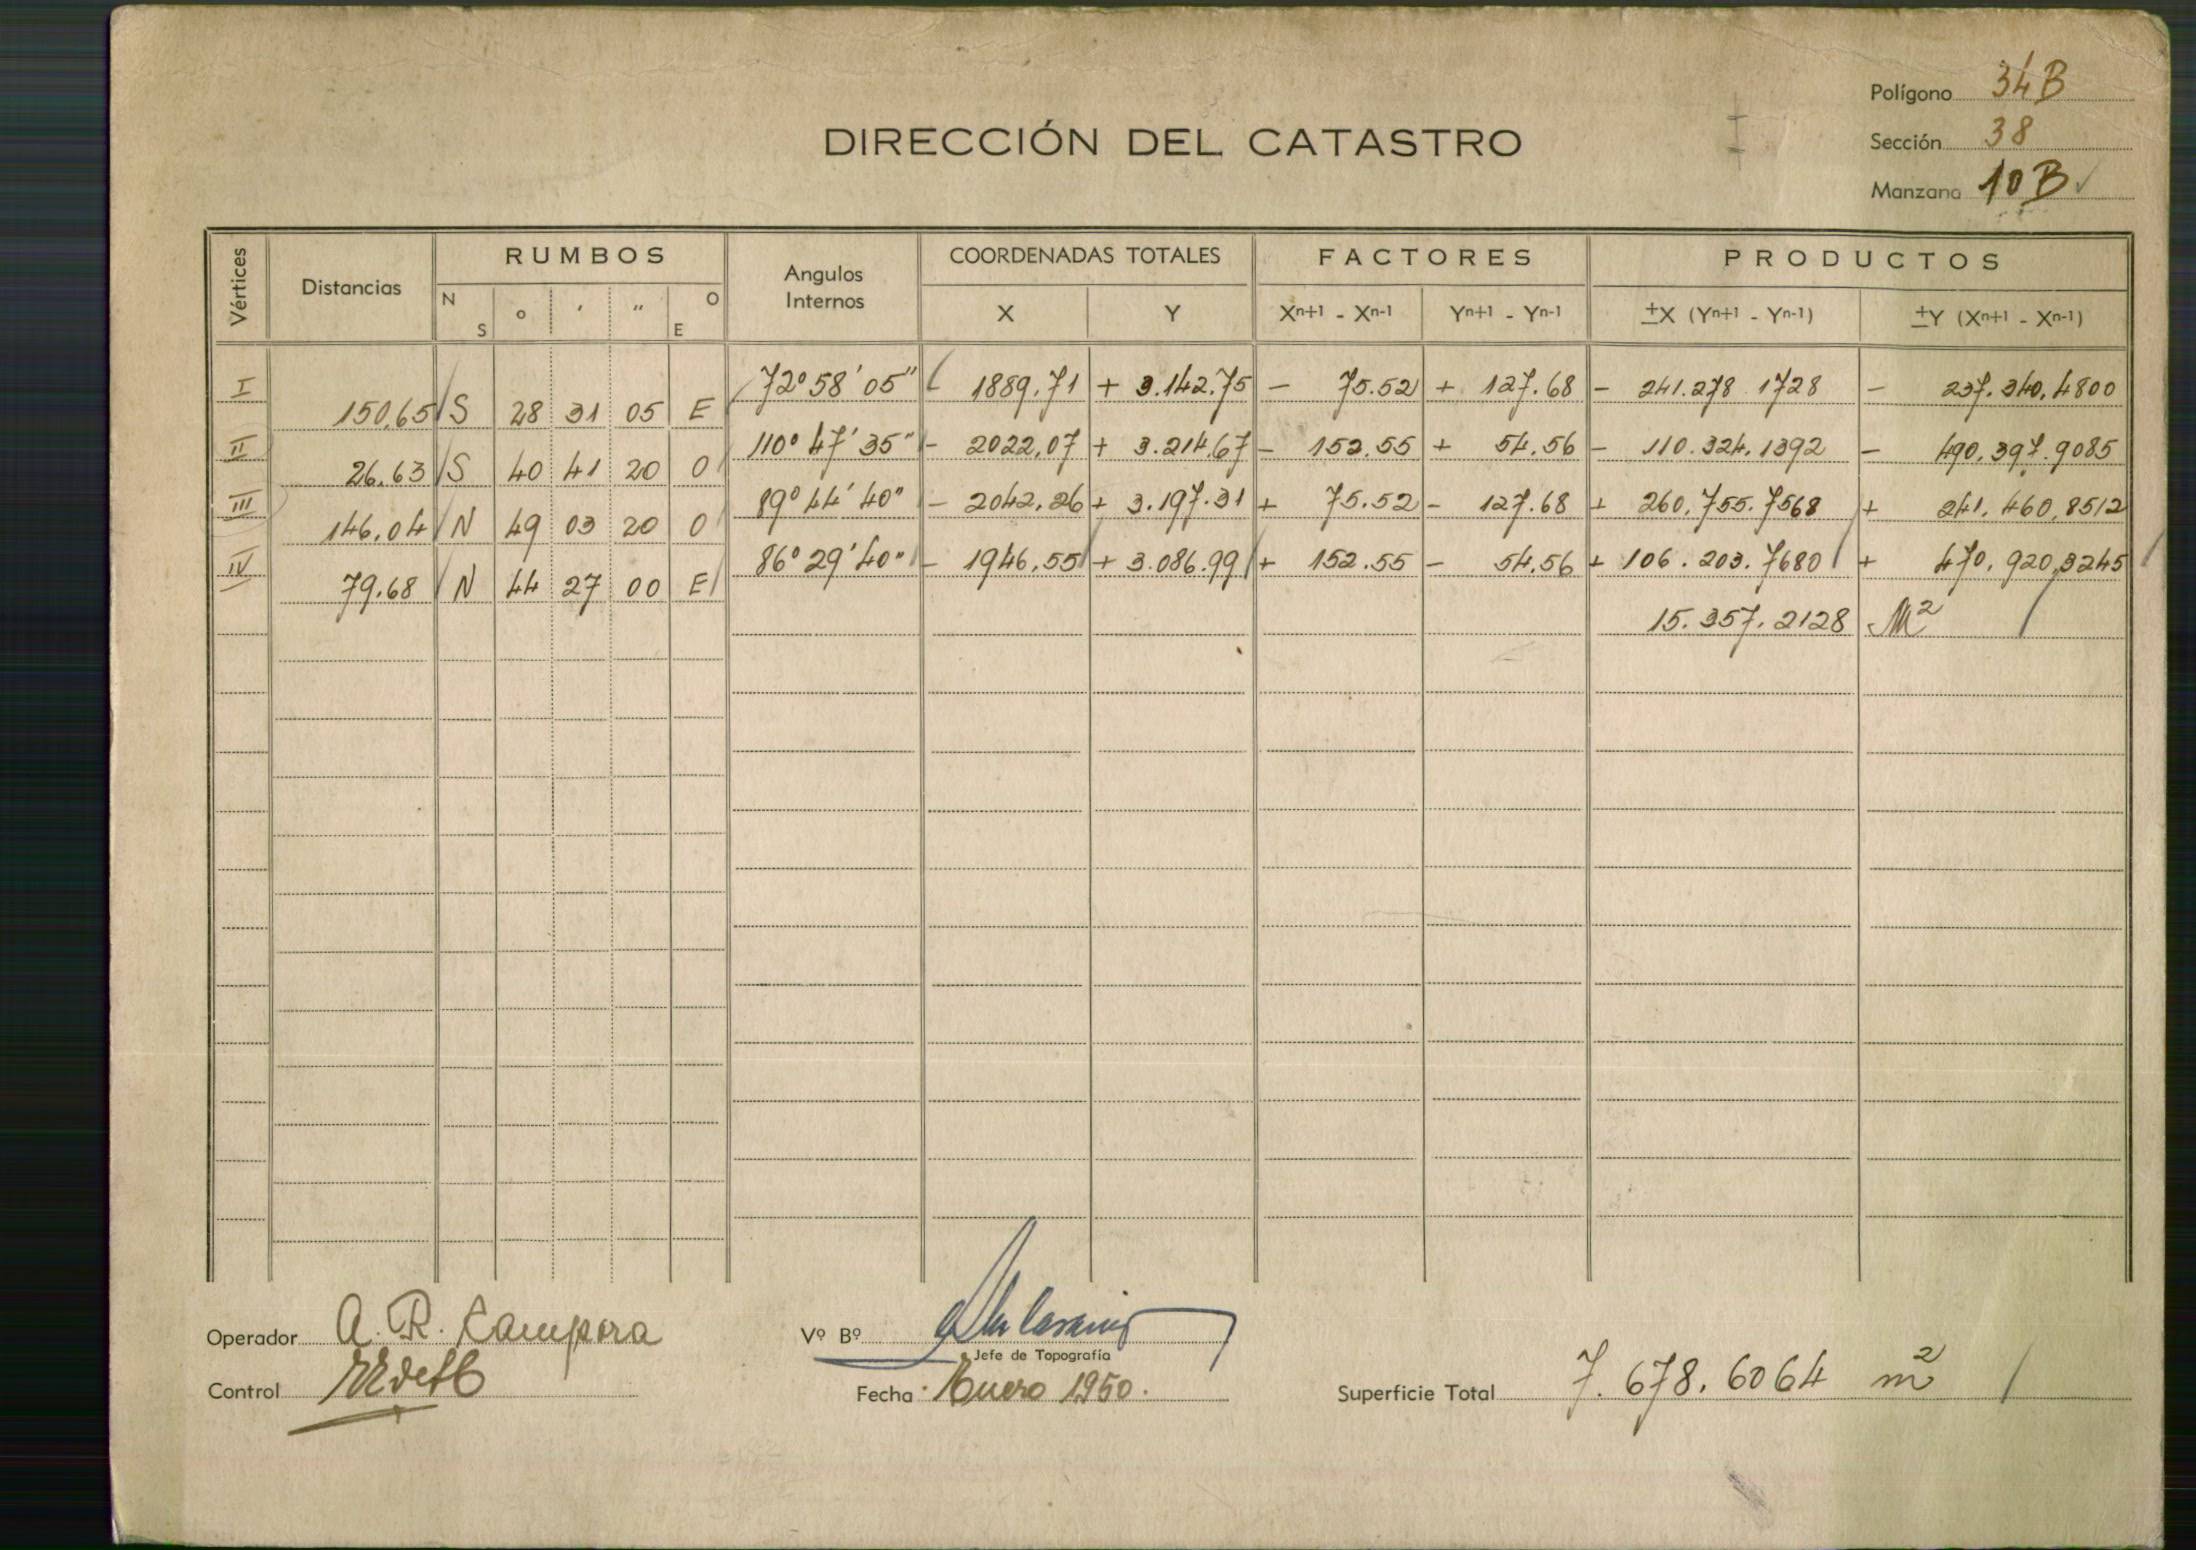 Polígono 34B
DIRECCIÓN DEL CATASTRO
Sección 38
Manzana 10B ✓
Vértices Distancias RUMBOS Angulos Internos COORDENADAS TOTALES FACTORES PRODUCTOS
N S ° ' " O E X Y Xn+1 - Xn-1 Yn+1 - Yn-1 ±X (Yn+1 - Yn-1) ±Y (Xn+1 - Xn-1)
I 150,65 S 28 31 05 E 72° 58' 05" - 1889,71 + 3.142.75 - 75.52 + 127.68 - 241.278.1728 - 237.340,4800
II 26,63 S 40 41 20 O 110° 47' 35" - 2022,07 + 3.214,67 - 152.55 + 54.56 - 110.324.1392 - 490.397.9085
III 146,04 N 49 03 20 O 89° 44' 40" - 2042,26 + 3.197.31 + 75.52 - 127.68 + 260.755.7568 + 241.460,8512
IV 79.68 N 44 27 00 E 86° 29' 40" - 1946,55 + 3.086.99 + 152.55 - 54.56 + 106.203.7680 + 470.920,3245
15.357.2128 M²
Operador A. R. Campora
Vº Bº
Jefe de Topografía
Control
Fecha Enero 1950.
Superficie Total 7.678.6064 m²